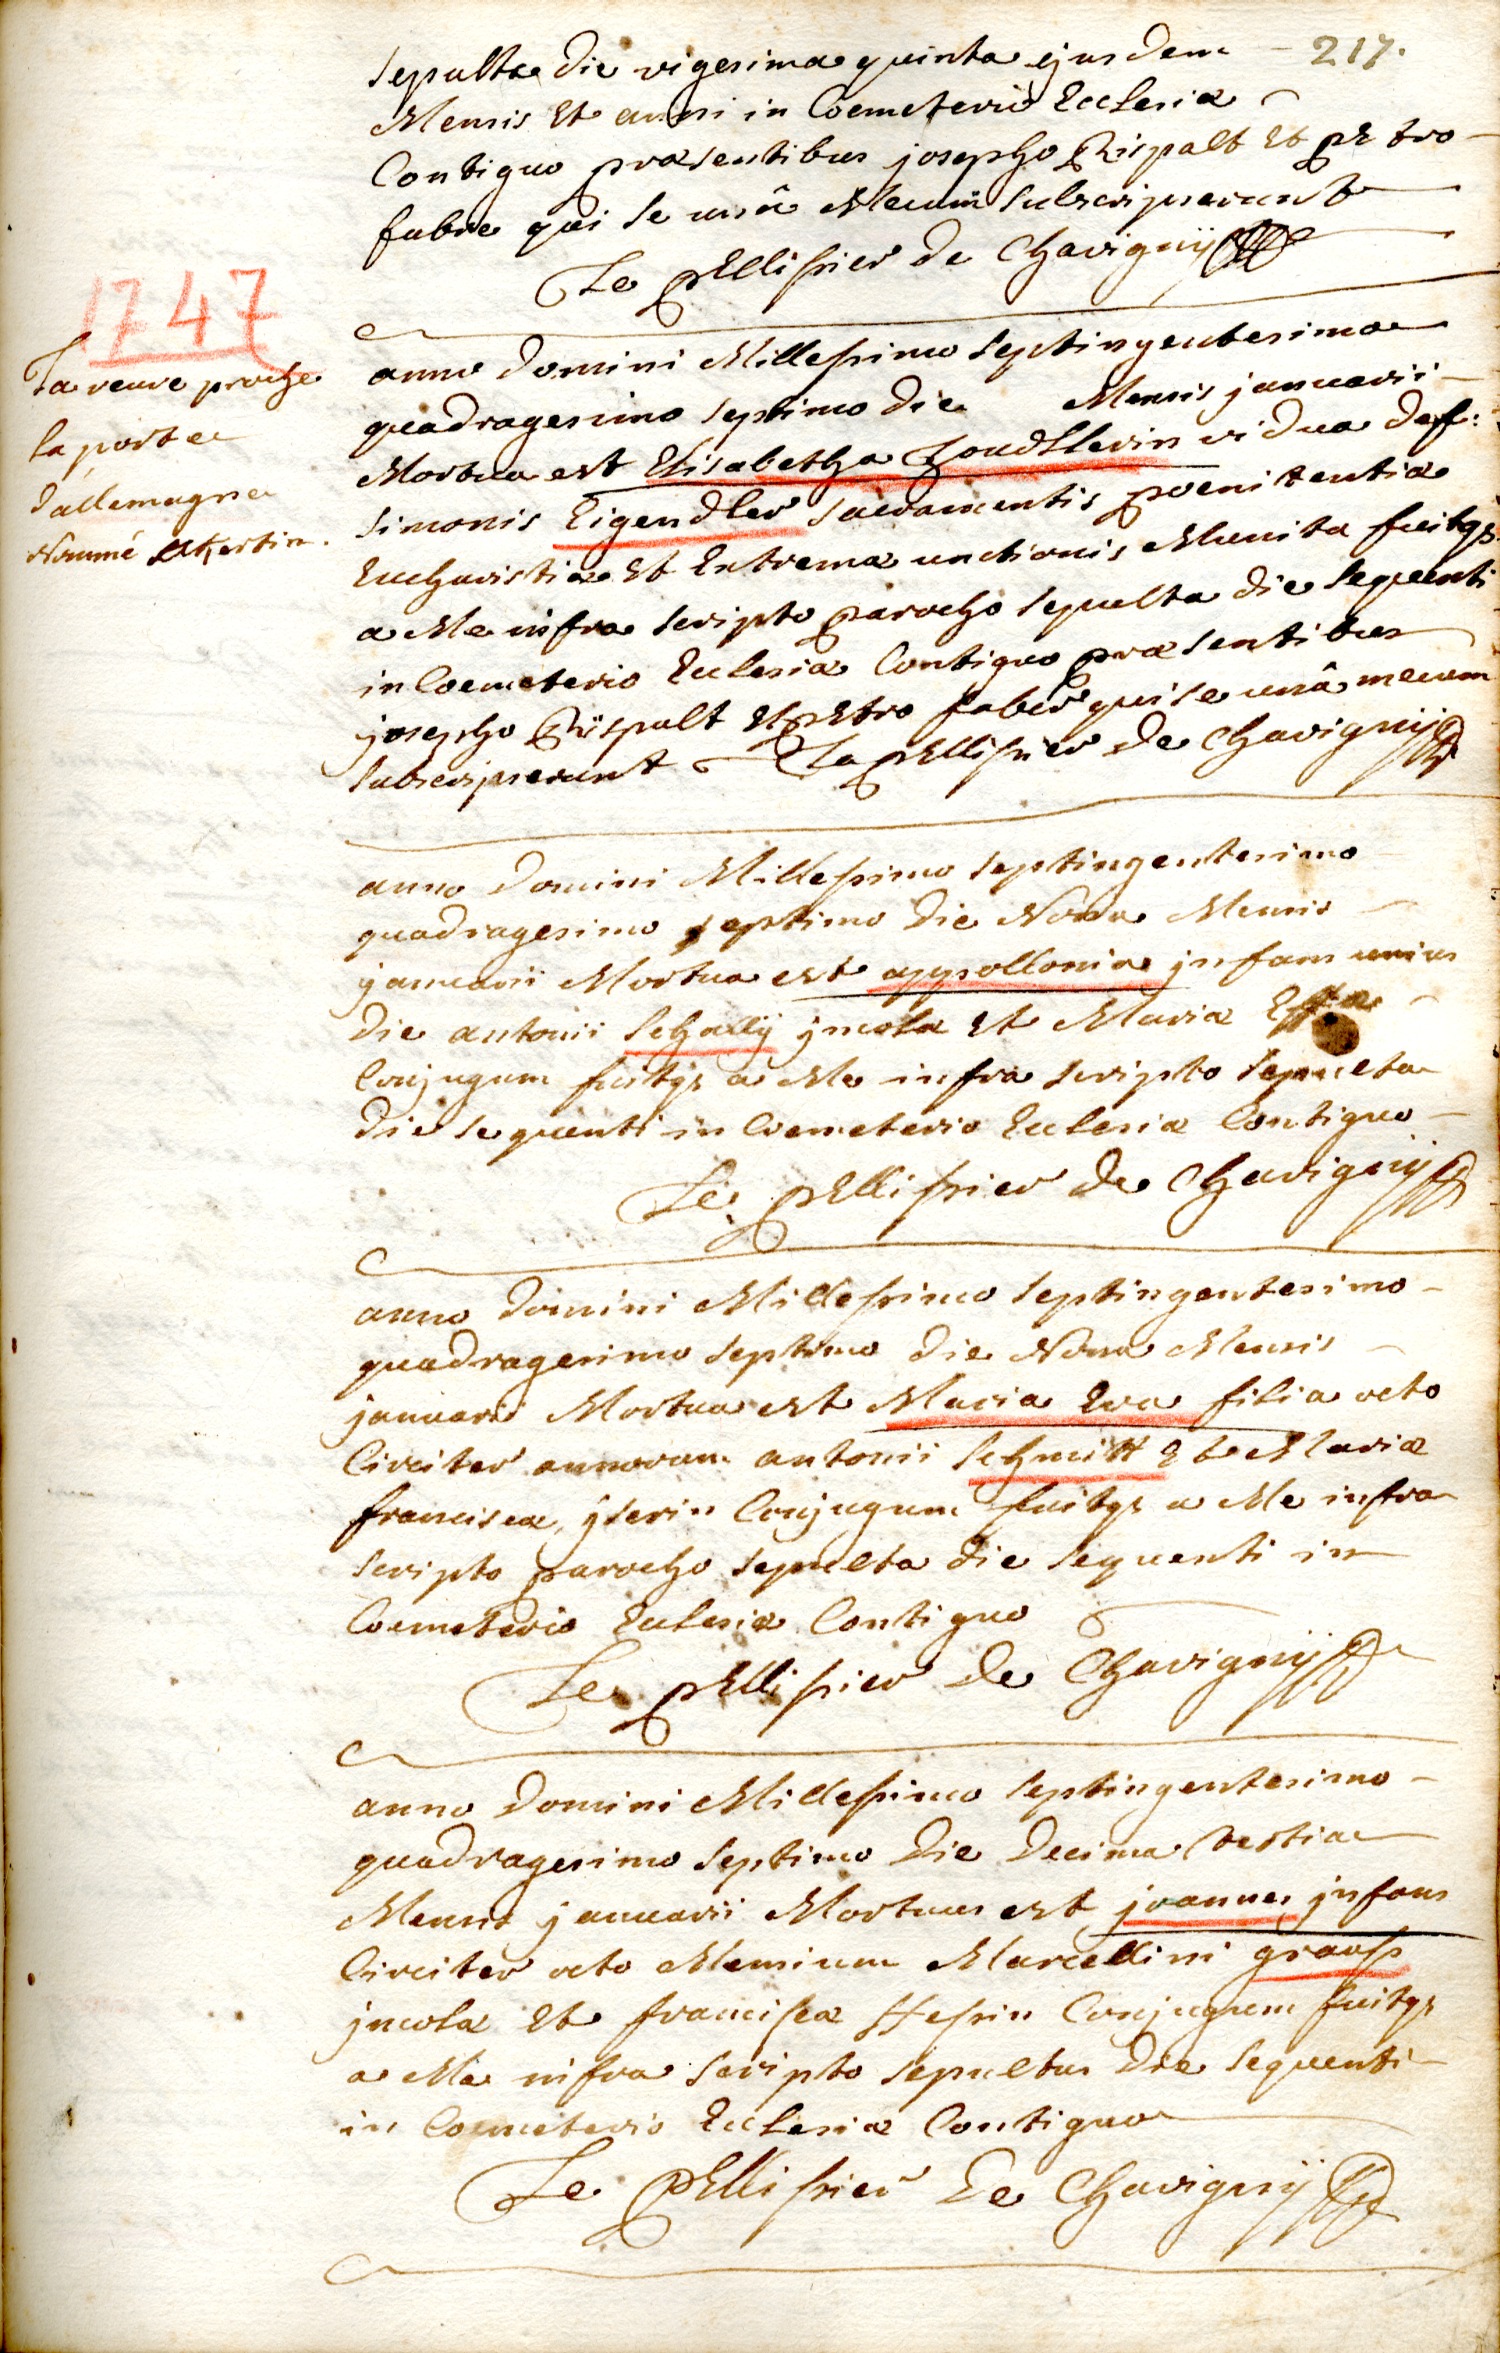 217.
sepulta die vigesima quinta ejusdem
Mensis Et anni in Coemeterio Ecclesiæ
Contiguo præsentibus josepho Rispalt Et pEtro
fabre qui se unâ Mecum subscripserunt
Le pEllissier de Chavignÿ
1747
La veuve proche
la porte
dallemagne
Nommé
anno Domini Millessimo septingentesimo
quadragesimo septimo die Mensis januarii
Mortua est Elisabetha vidua def:
simonis Eigendler sacramentis poenitentiæ
Eucharistiæ Et Extremæ unctionis Munita fuitqz
a Me infra scripto parocho sepulta die sequenti
in Coemeterio Ecclesiæ Contiguo præsentibus
josepho Rispalt Et pEtro faber qui se unâ mecum
subscripserunt Le pEllissier de Chavignÿ
anno Domini Millessimo septingentesimo
quadragesimo septimo die Nona Mensis
januarii Mortua est appollonia jnfans unius
die antonii schally jncolæ Et Mariæ
Conjugum fuitqz a Me infra scripto sepulta
die sequenti in Coemeterio Ecclesiæ Contiguo
Le pEllissier de Chavignÿ
anno Domini Millessimo septingentesimo
quadragesimo septimo die Nona Mensis
januarii Mortua est Maria Eva filia octo
Circiter annorum antonii schmitt Et Mariæ
franciscæ ÿserin Conjugum fuitqz a Me infra
scripto parocho sepulta die sequenti in
Coemeterio Ecclesiæ Contiguo
Le pEllissier de Chavignÿ
anno Domini Millessimo septingentesimo
quadragesimo septimo die Decima tertia
Mensis januarii Mortuus est joannes jnfans
Circiter octo Mensium Marcellini grauss
jncolæ Et franciscæ Hessin Conjugum fuitqz
a Me infra scripto sepultus die sequenti
in Coemeterio Ecclesiæ Contiguo
Le pEllissier De Chavignÿ